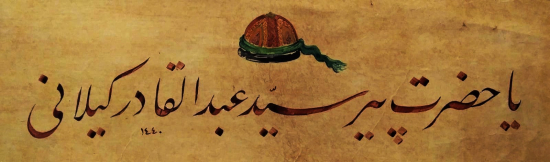 یا حضرت پیر سیّد عبدالقادر گیلانی
١٤٤٠